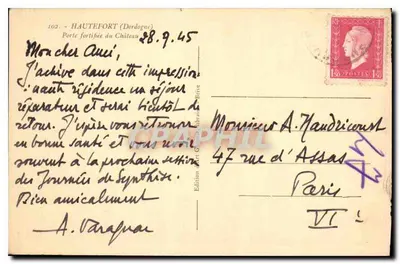 102. - HAUTEFORT (Dordogne)
Porte fortifiée du Château
28.9.45
Mon cher Ami,
J'achève dans cette impression-
nante résidence un séjour
réparateur et serai bientôt de
retour. J'espère vous retrouver
en bonne santé et vous voir
souvent à la prochaine session
des Journées de Synthèse.
Bien amicalement
A. Varagnac
Monsieur A. Haudricourt
47 rue d'Assas
Paris
VI
CPARAMA